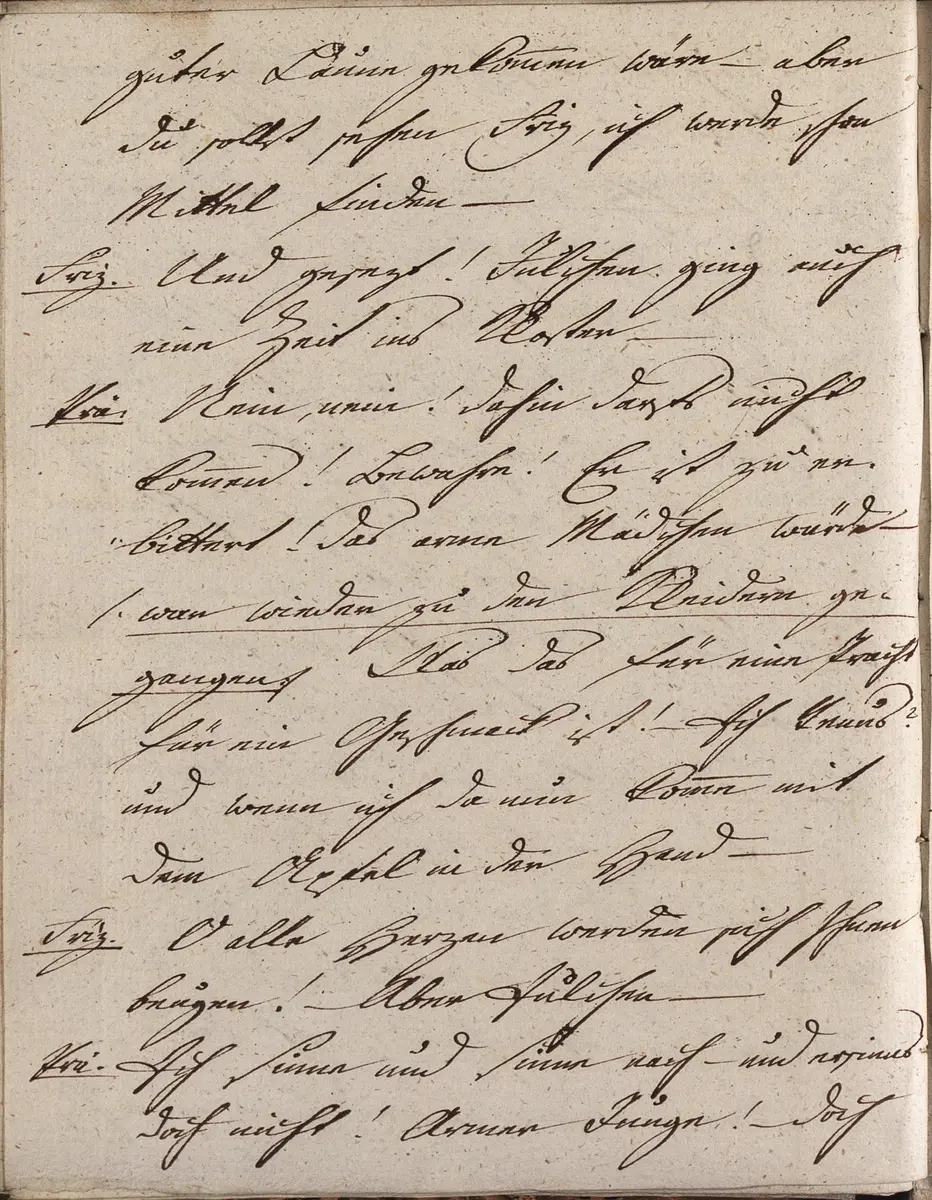 guter Laune gekom̅en wäre — aber
du sollst sehen Friz, ich werde schon
Mittel finden —
Friz. Und gesezt! Julchen ging auch
eine Zeit ins Kloster —
Prä. Nein, nein! dahin darfs nicht
kom̅en! Bewahre! Er ist zu er-
bittert! das arme Mädchen würde —
/: war wieder zu den Kleidern ge-
gangen :/ Was das für eine Pracht
für ein Geschmack ist! — Ich Venus?
und wenn ich da nun kom̅e mit
dem Apfel in der Hand —
Friz. O alle Herzen werden sich Ihnen
beugen! — Aber Julchen —
Prä. Ich sinne und sinne nach — und ersinns
doch nicht! Armer Junge! — doch